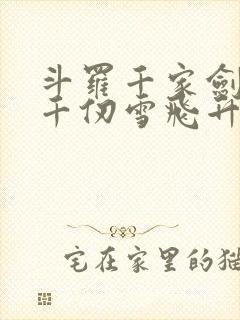 斗羅千家劍
千仞雪飛升
宅在家里的猫